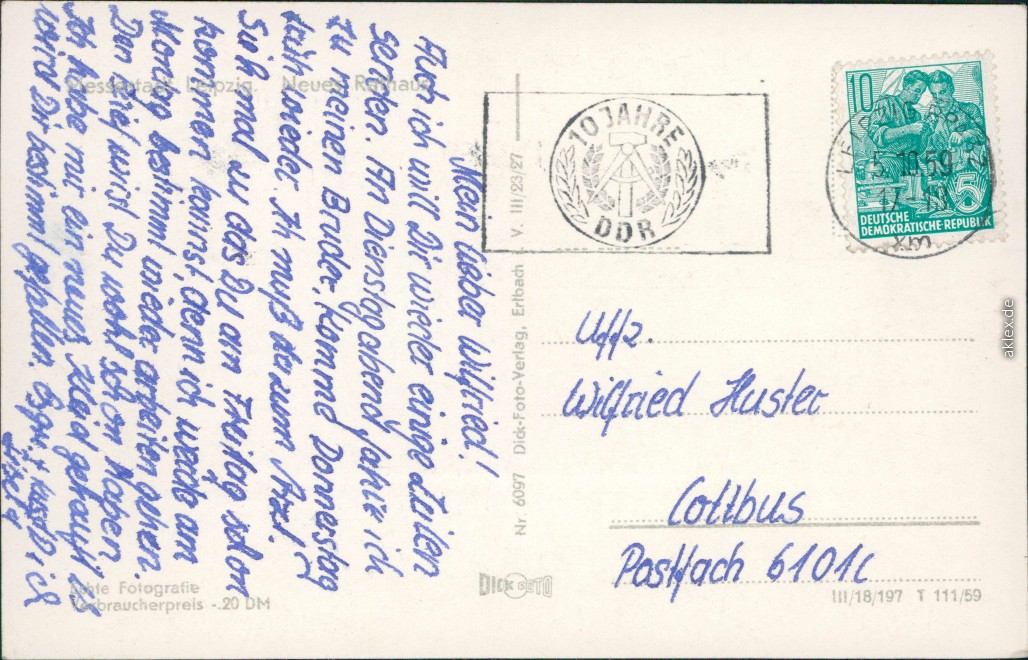 Messestadt Leipzig. Neues Rathaus
Mein lieber Wilfried!
Auch ich will Dir wieder einige Zeilen
senden. Am Dienstag abend fahre ich
zu meinen Bruder, komme Donnerstag
früh wieder. Ich muß da zum Arzt.
Sieh mal zu das Du am Freitag schon
kommen kannst, denn ich werde am
Montag bestimmt wieder arbeiten gehen.
Den Brief wirst Du wohl schon haben.
Ich habe mir ein neues Kleid gekauft es
wird Dir bestimmt gefallen. Es grüßt + küßt Dich
Echte Fotografie
Verbraucherpreis -.20 DM
Nr 6097 Dick-Foto-Verlag, Erlbach i. V. III/23/27
DICK FOTO
10 JAHRE
DDR
5.10.59
10
5
DEUTSCHE
DEMOKRATISCHE REPUBLIK
Uffz.
Wilfried Huster
Cottbus
Postfach 6101c
III/18/197 T 111/59
aklex.de